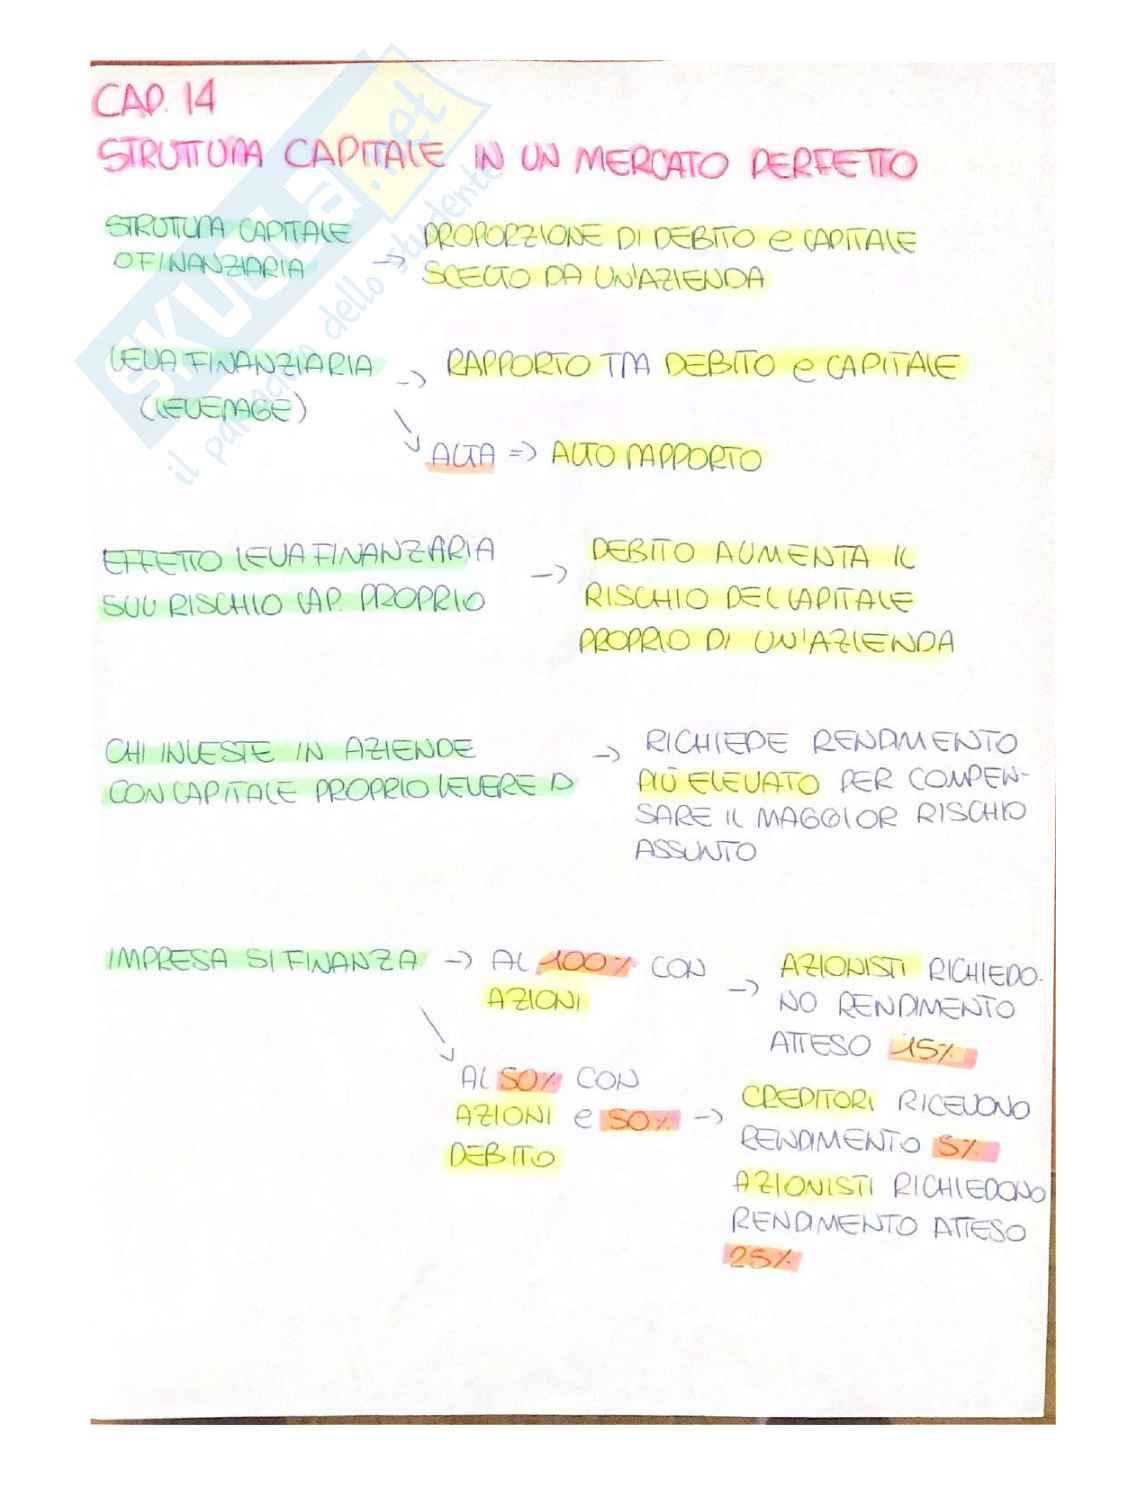 CAP. 14
STRUTTURA CAPITALE IN UN MERCATO PERFETTO
STRUTTURA CAPITALE
O FINANZIARIA
-> PROPORZIONE DI DEBITO e CAPITALE
SCELTO DA UN'AZIENDA
LEVA FINANZIARIA
(LEVERAGE)
-> RAPPORTO TRA DEBITO e CAPITALE
ALTA => ALTO RAPPORTO
EFFETTO LEVA FINANZARIA
SUL RISCHIO CAP. PROPRIO
-> DEBITO AUMENTA IL
RISCHIO DEL CAPITALE
PROPRIO DI UN'AZIENDA
CHI INVESTE IN AZIENDE
CON CAPITALE PROPRIO LEVERED
-> RICHIEDE RENDIMENTO
PIÙ ELEVATO PER COMPEN-
SARE IL MAGGIOR RISCHIO
ASSUNTO
IMPRESA SI FINANZA -> AL 100% CON
AZIONI
-> AZIONISTI RICHIEDO-
NO RENDIMENTO
ATTESO 15%
AL 50% CON
AZIONI e 50%
DEBITO
-> CREDITORI RICEVONO
RENDIMENTO 5%
AZIONISTI RICHIEDONO
RENDIMENTO ATTESO
25%
SKUOLA.net
il paradiso dello studente